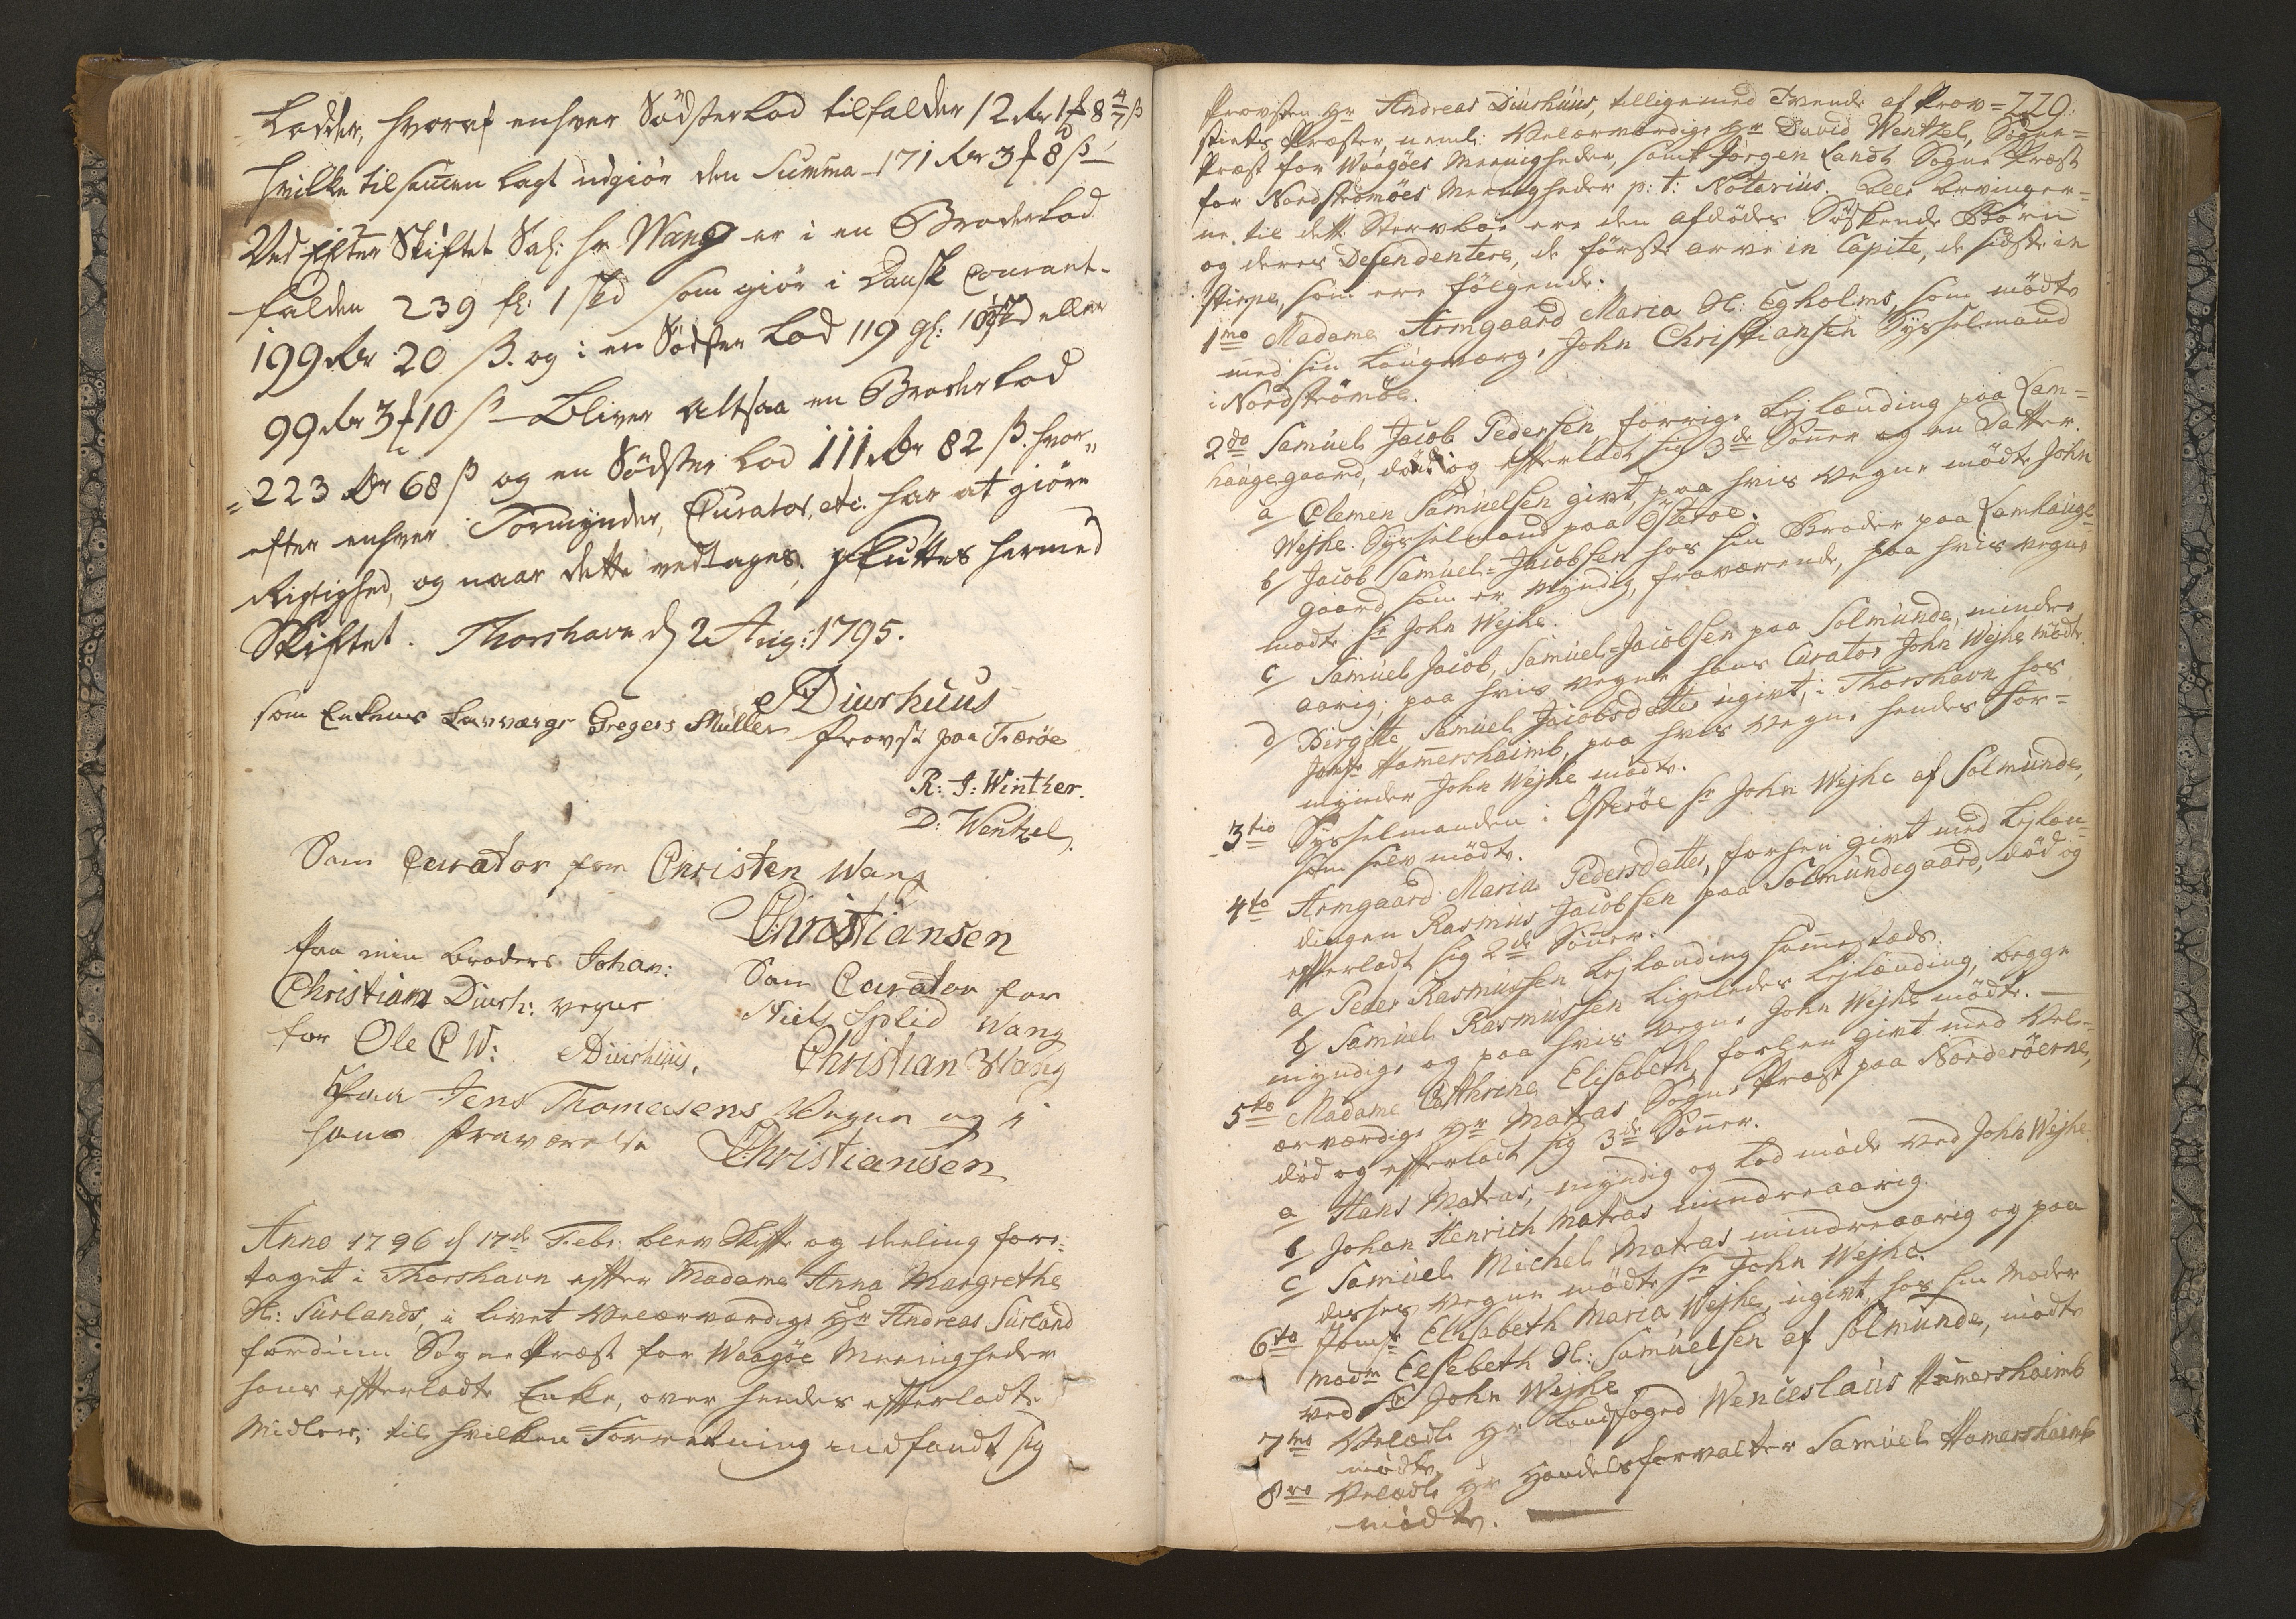 Lodder, hvoraf enhver Södsterlod tilfalder 12 rdr 1 ℔ 8 4/7 ß
hvilke tilsamen lagt udgiör den Summa 171 rdr 3 ℔ 8 ß
Ved Efter Skiftet Sal: hr Wang er i en Broderlod
falden 239 fl: 1 skd som giör i Dansk Courant
199 rdr 20 ß. og i en Södster Lod 119 gl: 10 skd eller
99 rdr 3 ℔ 10 ß Bliver altsaa en Broder Lod
=223 rdr 68 ß og en Södster Lod 111 rdr 82 ß. hvor„
efter enhver Formynder, Curator, etc: har at giöre
Rigtighed, og naar dette vedtages, sluttes hermed
Skiftet. Thorshavn d 2 Aug: 1795.
A Diurhuus
som Enkens Lavværge Gregers Müller Provst paa Færöe
R: J: Winther.
D: Wentzel.
Som Curator for Christen Wang
Christiansen
Paa min broders Johan:
Christian Diurh: vegne
for Ole C W: ADiurhuus.
Som Curator for
Niels Splid Wang
Christian Wang
Paa Jens Thomasens Vegne og i
hans fraværelse Christiansen
Anno 1796 d 17de Febr: blev Skifte og deeling fore:
taget i Thorshavn efter Madame Anna Margrethe
Sl: Surlands, i livet Velærværdige Hr Andreas Surland
fordum Sogne Præst for Waagöe Meenigheder
hans efterladte Enke, over hendes efterladte
Midler; til hvilken Forretning indfandt sig
220.
Provsten Hr Andreas Diurhuus, tilligemed Tvende af Prov=
stiets Præster, neml: Velærværdige Hr David Wentzel, Sogne=
Præst for Waagöes Meenigheder, samt Jörgen Landt Sogne Præst
for Nordströmöes Meenigheder p: t: Notarius. Alle Arvinger=
ne til dette Stervboe ere den afdödes Söskende Börn
og deres Desendentere, de förste arve in Capite, de sidste in
stirpe, som ere fölgende:
1mo Madame Armgaard Maria Sl: Egholms, som mödte
med sin Laugværge, John Christiansen Sysselmand
i Nordströmöe.
2do Samuel Jacob Pedersen forrige Lejlænding paa Lam=
haugegaard, död og efterladt sig 3de Sönner og en Datter.
a Clemen Samuelsen givt, paa hvis Vegne mödte John
Wejhe Sysselmand paa Österöe.
b Jacob Samuel=Jacobsen hos sin Broder paa Lamhauge=
gaard, som er Myndig, fraværende, paa hvis vegne
mödte Sr John Wejhe.
c Samuel Jacob, Samuel=Jacobsen paa Solmunde, mindre
aarig; paa hvis vegne hans Curator John Wejhe mödte.
d Birgitte Samuel Jacobsdatter ugivt, i Thorshavn hos
Jomfr Hamershaimb, paa hvis Vegne hendes For=
mynder John Wejhe mödte.
3tio Sysselmanden i Österöe Sr John Wejhe af Solmunde,
som selv mödte.
4to Armgaard Maria Pedersdatter, forhen givt med Lejlæn=
dingen Rasmus Jacobsen paa Solmundegaard, död og
efterladt sig 2de Sönner.
a Peder Rasmussen Lejlænding sammestæds.
b Samuel Rasmussen ligeledes Lejlænding, begge
myndige og paa hvis Vegne John Wejhe mödte.
5to Madame Cathrine Elisabeth, forhen givt med Vel=
ærværdige Hr Matras Sogne Præst paa Norderöerne,
död og efterladt sig 3de Sönner.
a Hans Matras, myndig og lod möde ved John Wejhe.
b Johan Henrich Matras mindreaarig.
c Samuel Michel Matras mindreaarig og paa
disses Vegne mödte Sr John Wejhe.
6to Jomfr Elisabeth Maria Wejhe, ugivt, hos sin Moder
Madm Elsebeth Sl: Samuelsen af Solmunde, mödte
ved Sr John Wejhe
7mo Velædle Hr Landfoged Wenceslaus Hamershaimb
mödte.
8vo Velædle Hr Handelsforvalter Samuel Hamershaimb
mödte.